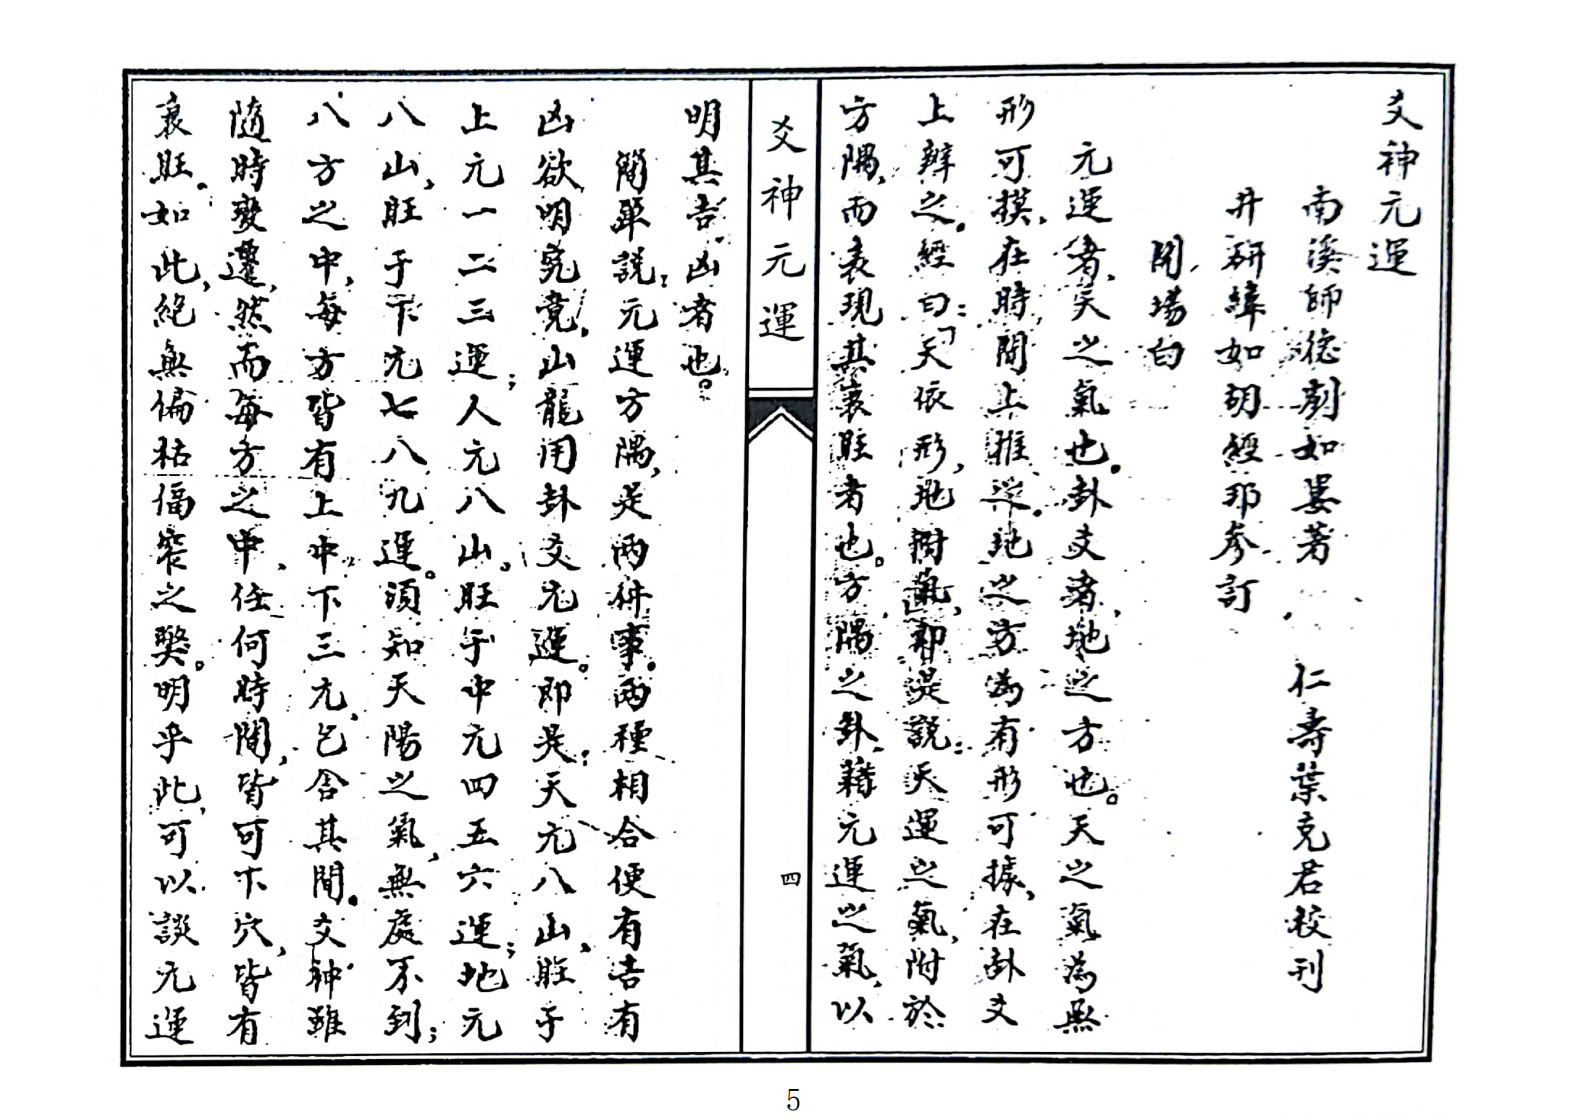 爻神元運
南溪師德劇如晏著 仁壽葉克君校刊
井研緯如胡經邦參訂
開場白
元運者,天之氣也。卦爻者,地之方也。天之氣為無
形可摸,在時間上推逆。地之方為有形可據,在卦爻
上辨之。經曰:「天依形,地附氣,即是說:天運之氣,附於
方隅,而表現其衰旺者也。方隅之卦,藉元運之氣,以
明其吉凶者也。
簡單說:元運方隅,是兩件事。兩種相合便有吉有
凶欲明究竟,山龍用卦爻元運。即是:天元八山,旺于
上元一二三運;人元八山。旺于中元四五六運;地元
八山,旺于下元七八九運。須知天陽之氣,無處不到;
八方之中,每方皆有上中下三元,包含其間。爻神雖
隨時變遷,然而每方之中,任何時間,皆可下穴,皆有
衰旺。如此,絕無偏枯偪窄之獘。明乎此,可以談元運
爻神元運
四
5